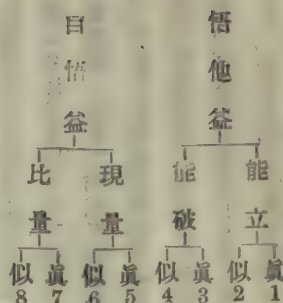 悟他益
能立
眞1
似2
能破
眞3
似4
自悟益
現量
眞5
似6
比量
眞7
似8